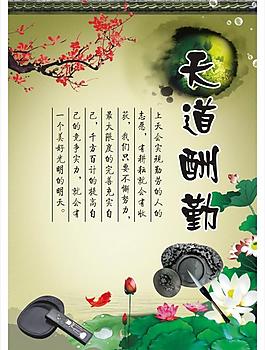 天道酬勤
上天会实现勤劳的人的
志愿，有耕耘就会有收
获，我们只要不懈努力，
最大限度的完善充实自
己，千方百计的提高自
己的竞争实力，就会有
一个美好光明的明天。